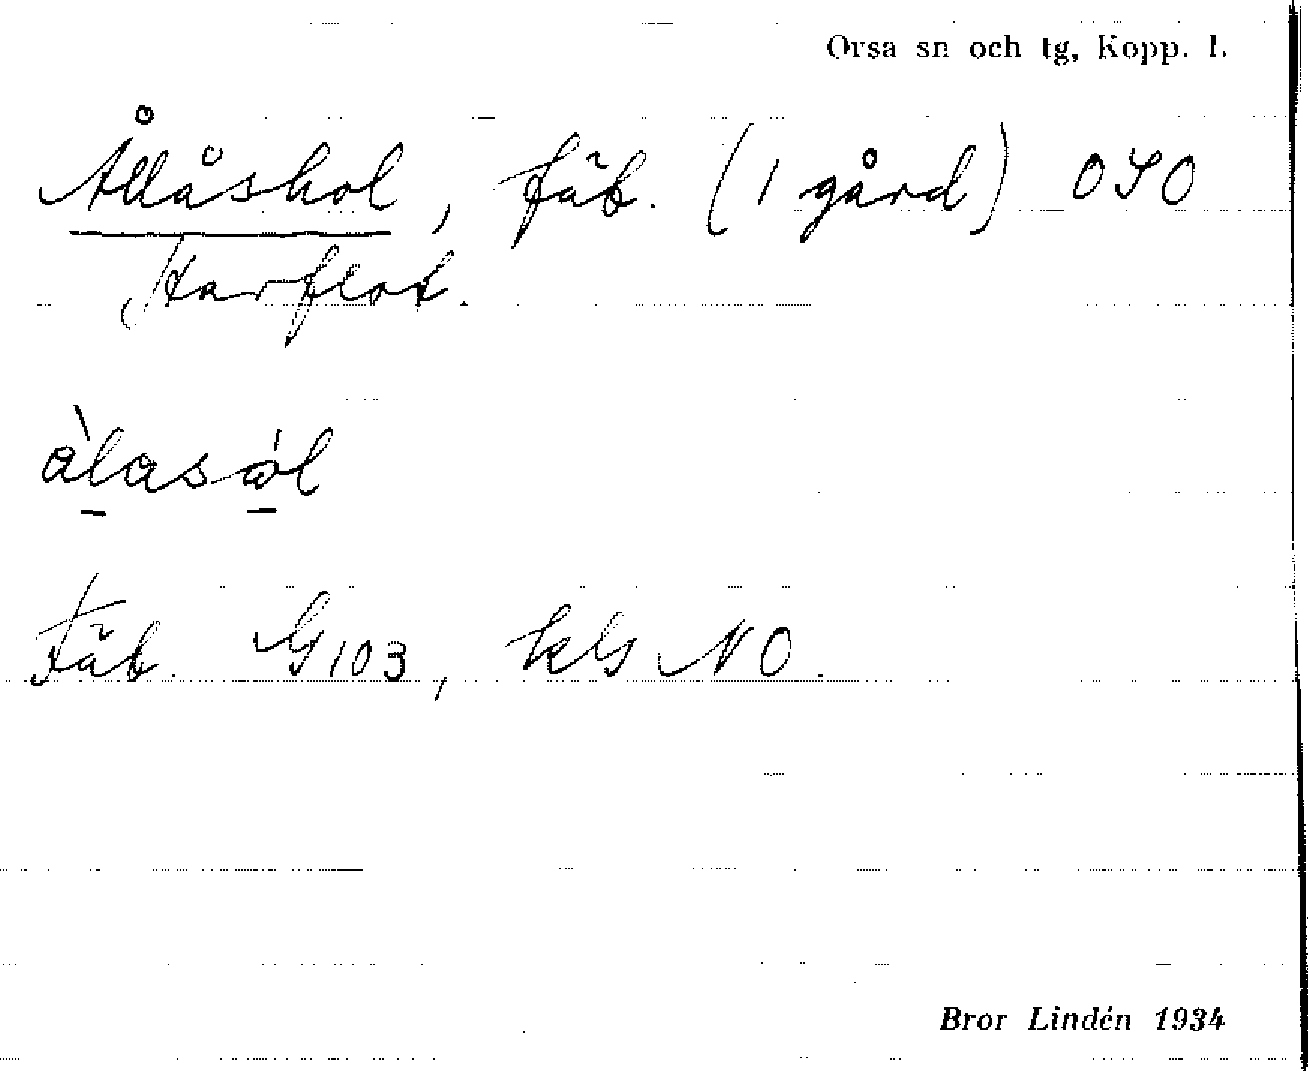 Orsa sn och tg, Kopp. l.
Ållåshol, fäb. (1 gård) OSO
Harflot.
àlasól
Fäb. G103, kls NO.
Bror Lindén 1934